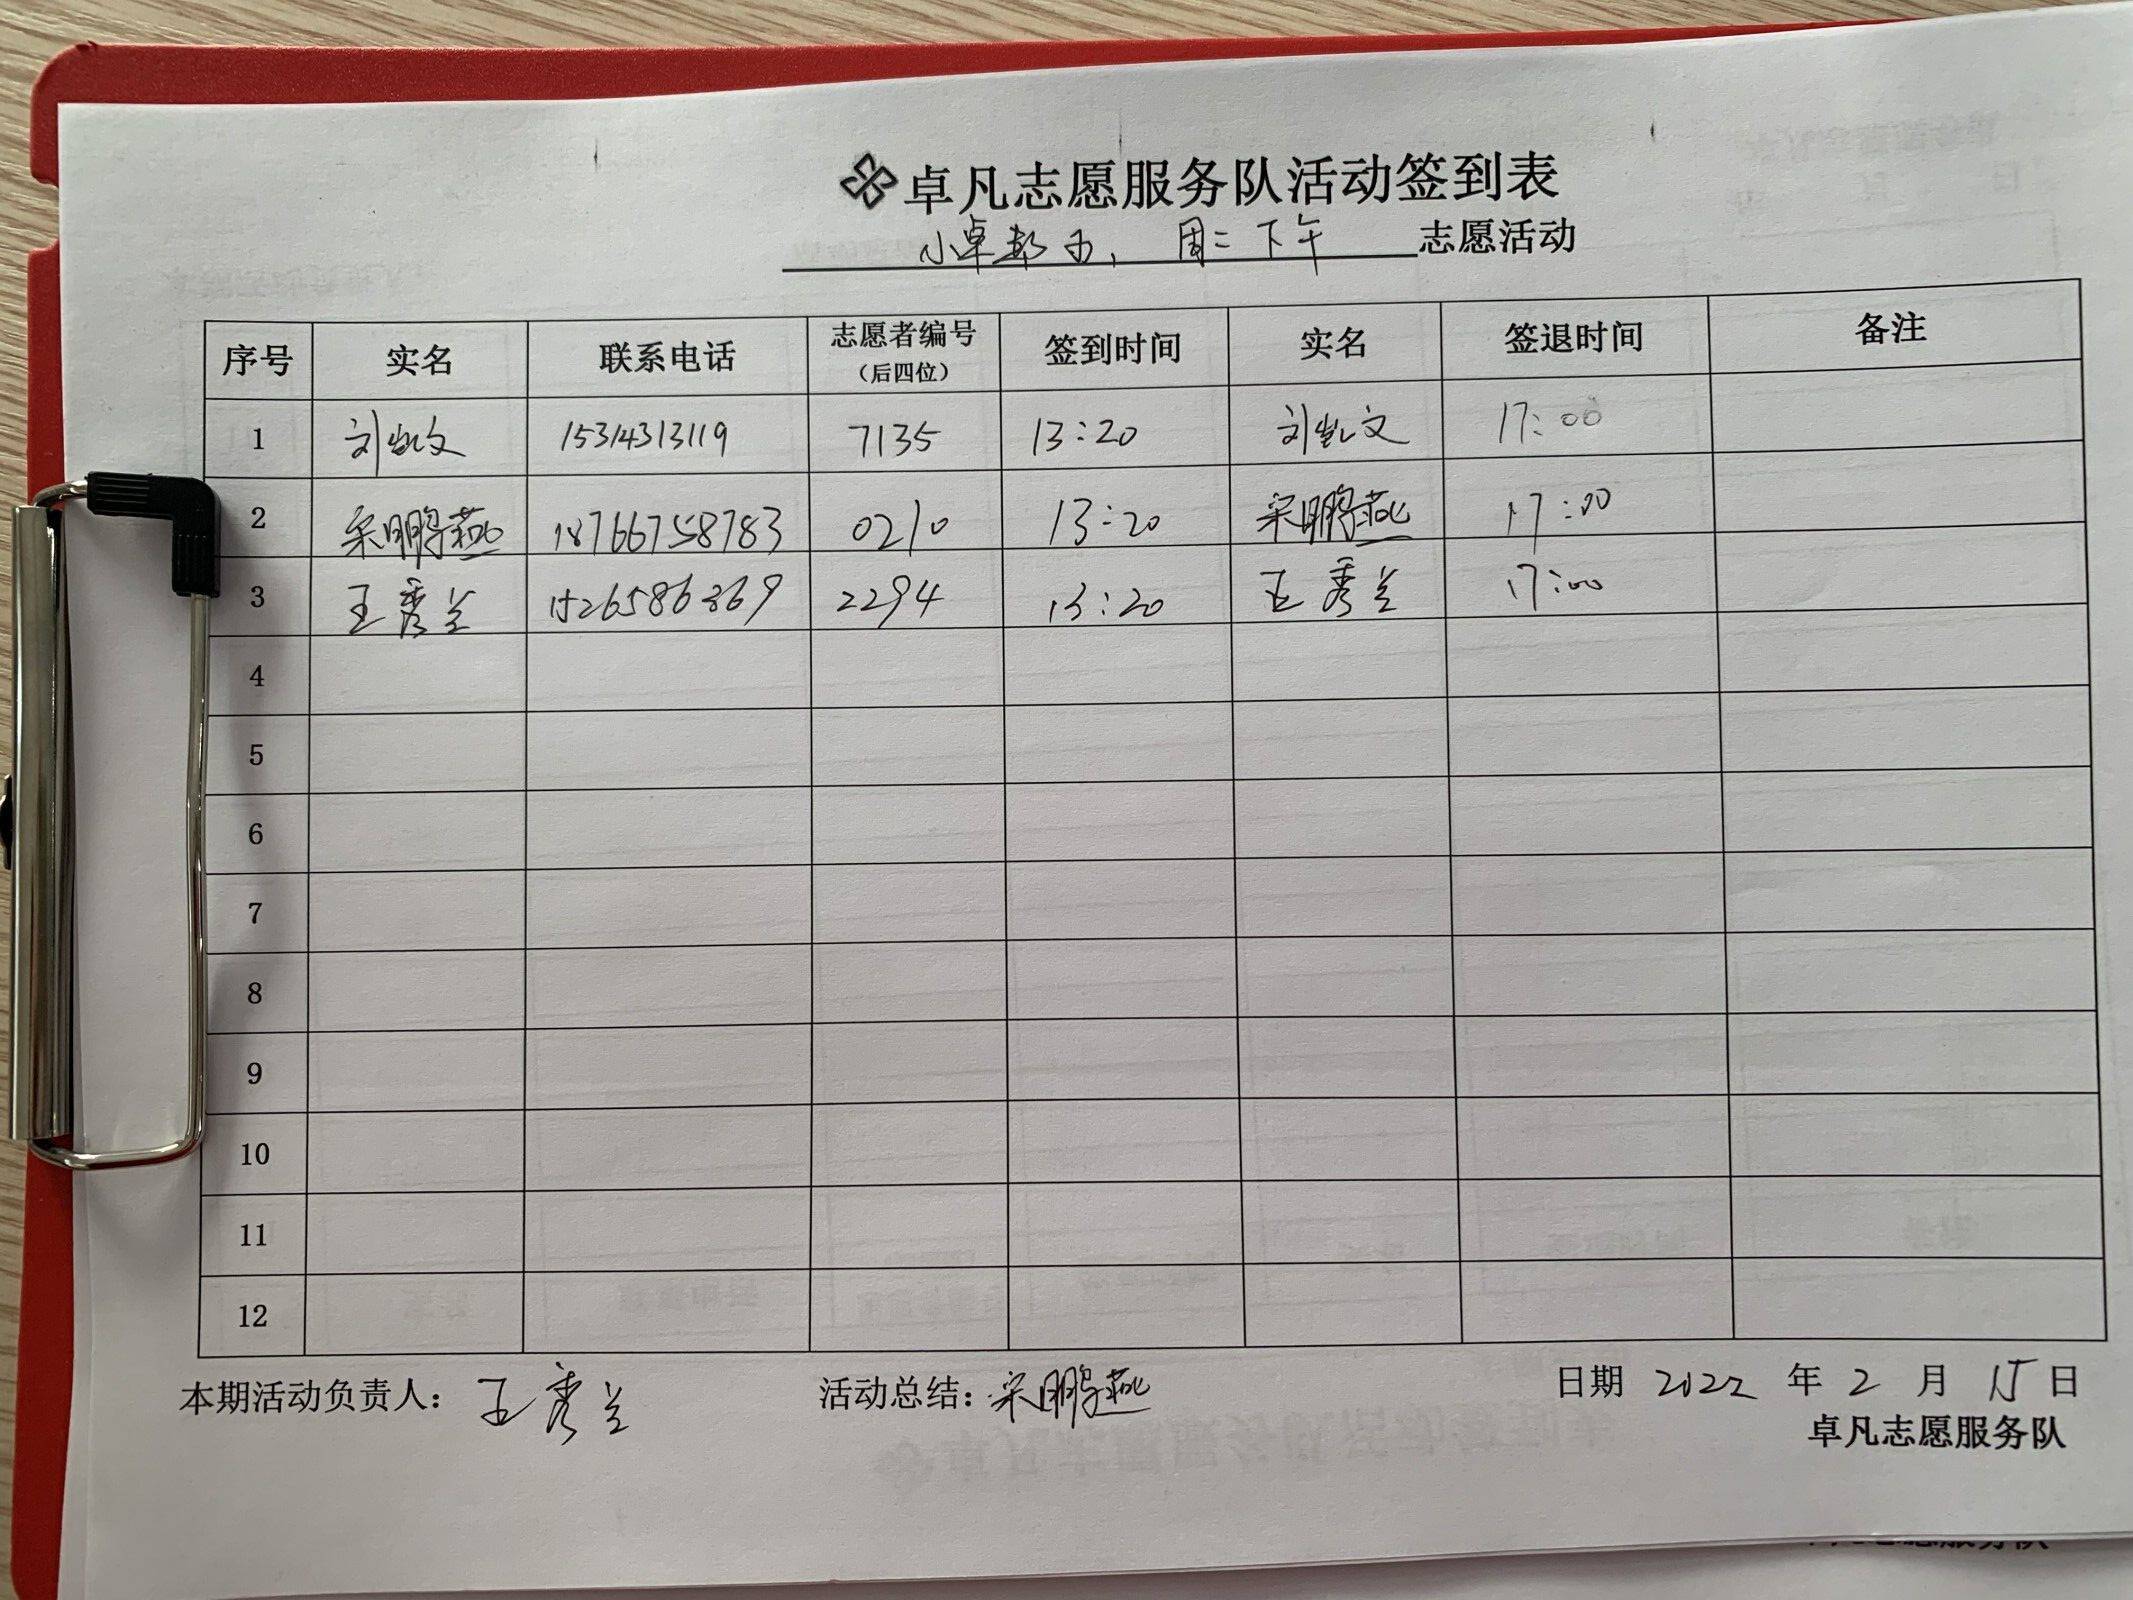 卓凡志愿服务队活动签到表
小卓 周二下午 志愿活动
序号 实名 联系电话 志愿者编号（后四位） 签到时间 实名 签退时间 备注
1 刘凯文 15314313119 7135 13:20 刘凯文 17:00
2 宋鹏燕 18766758783 0210 13:20 宋鹏燕 17:00
3 王秀兰 2294 13:20 王秀兰 17:00
4
5
6
7
8
9
10
11
12
本期活动负责人：王秀兰 活动总结：宋鹏燕 日期 2022 年 2 月 15 日
卓凡志愿服务队